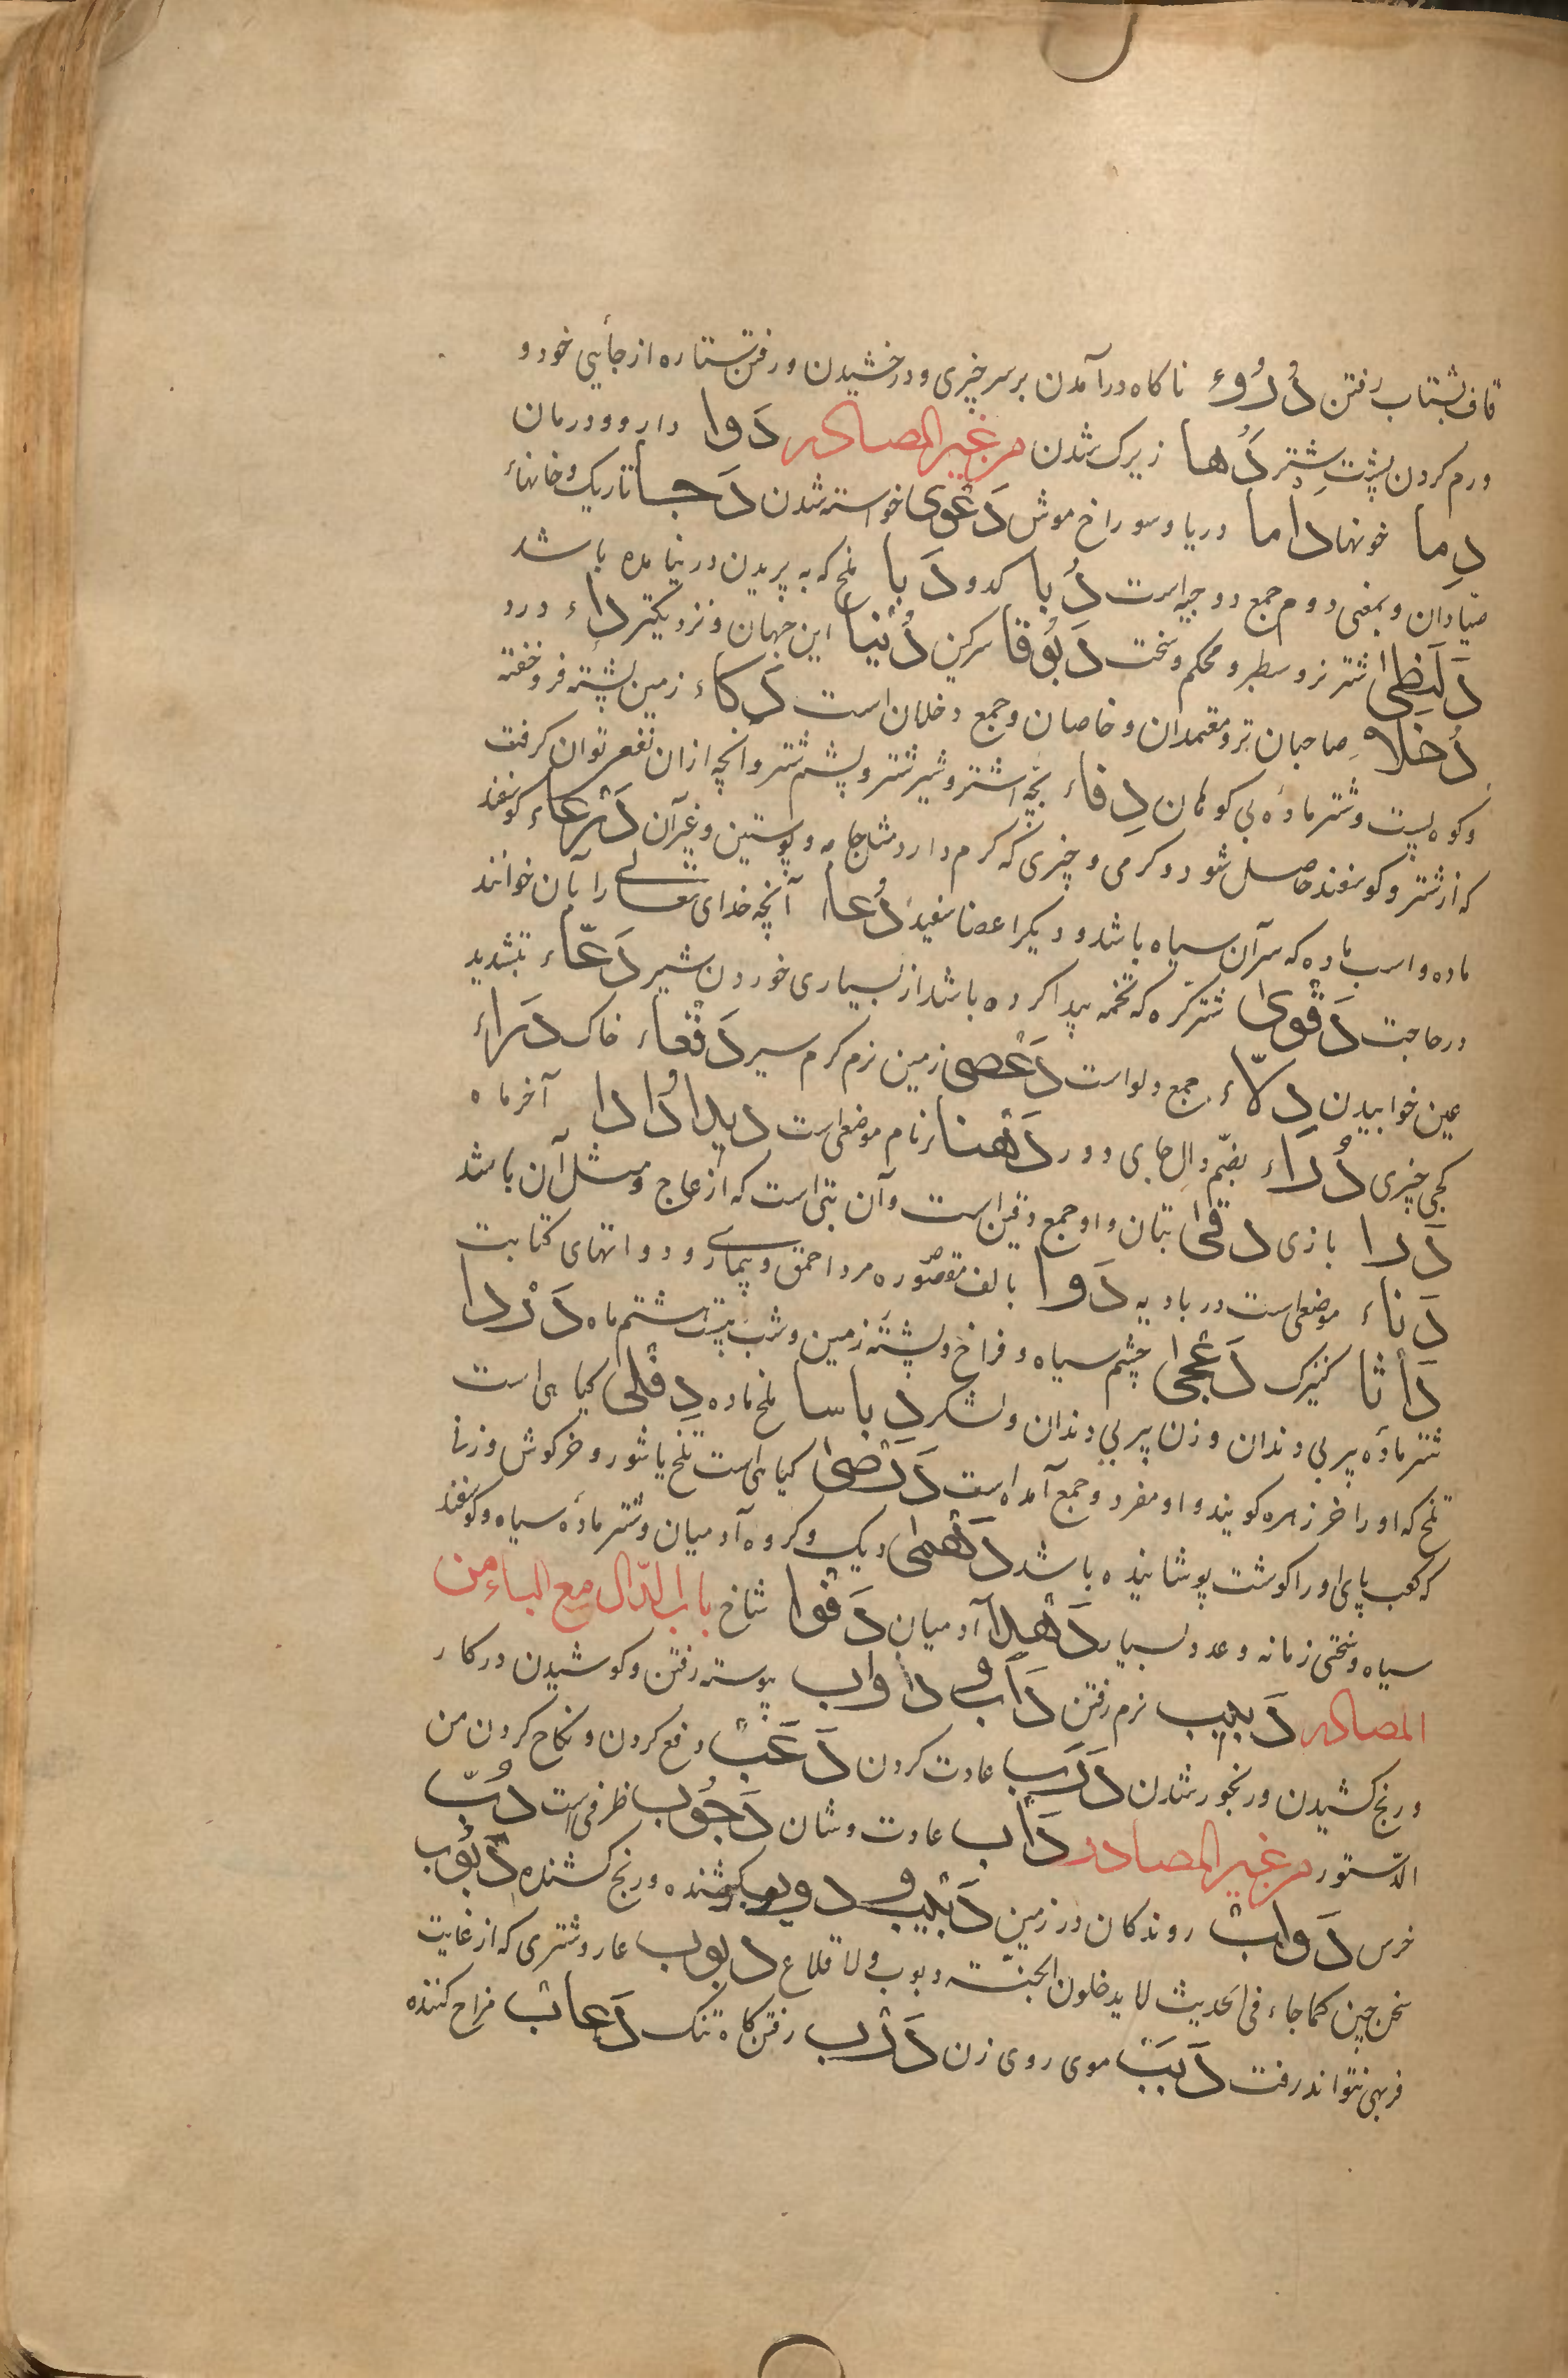 قاف بشتاب رفتن دُرُوء ناکاه درآمدن بر سر چیزی و درخشیدن و رفتن ستاره از جأیی خود و
ورم کردن پشتِ شتر دُها زیرک شدن من غیر المصادر دَوا دارو و درمان
دِما خونها داما دریا و سوراخ موش دَعْوی خواسته شدن دَجا تاریک و خانهاء
صیّادان و بمعنی دوم جمع دوجیه است دُبا کدو دَبا ملخ که به پریدن در نیامده باشد
دَلَنظی شتر نر و سطبر و محکم و سخت دَبُوقا سرکین دُنْیا این جهان و نزدیکتر داء درد
دُخلاء صاحبان تر و معتمدان و خاصان و جمع دخلان است دَکاء زمین پشته فرو خفته
و کوه پست و شتر مادۀ بی کوهان دِفاء بچّه اشتر و شیر شتر و پشم شتر و آنچه ازان نفع توان کرفت
که از شتر و کوسفند حاصل شود و کرمی و چیزی که کرم دارد مثل جامه و پوستین و غیر آن دَرْعاء کوسفند
ماده و اسب ماده که سر آن سیاه باشد و دیکر اعضا سفید دُعا آنچه خدای تعالی را بآن خوانند
در حاجت دَقْوی شتر کره که تخمه پیدا کرده باشد از بسیاری خوردن شیر دَعّاء بتشدید
عین خوابیدن دِلاّء جمع دلو است دَعْصی زمین نرم کرم سیر دَقْعاء خاک دَراء
کجی چیزی دُراء بضمّ دال جای دور دَهْنا نام موضعی است دیدا دُادا آخر ماه
دَدا بازی دقی بتان و او جمع دقین است و آن بتی است که از عاج و مثل آن باشد
دَناء موضعی است در بادیه دَوا بالف مقصّوره مرد احمق و بیماری و دواتهای کتابت
دَأثا کنیزک دَعْجی چشم سیاه و فراخ و پشتۀ زمین و شب بیست هشتم ماه دَرْدا
شتر مادۀ پیر بی دندان و زن پیر بی دندان و لشکر دباسا ملخ ماده دِفْلی کیاهی است
تلخ که او را خر زهره کویند و او مفرد و جمع آمده است دَرَضی کیاهی است تلخ یا شور و خرکوش و زنا
که کعب پای او را کوشت پوشانیده باشد دَهْمی دیک و کروه آدمیان و شتر مادۀ سیاه و کوسفند
سیاه و سختی زمانه و عدد بسیار دَهْدا آدمیان دَفْوا شاخ باب الدّال مع الباء من
المصادر دَبیب نرم رفتن دَأب و داوب پیوسته رفتن و کوشیدن در کار
و رنج کشیدن و رنجور شدن دَرَب عادت کردن دَعْب دفع کردن و نکاح کردن من
الدستور من غیر المصادر دَأب عادت و شان دَجُوب ظرفی است دُبّ
خرس دَوابّ روندکان در زمین دَئیب و کوشنده و رنج کشنده دَبُوب
سخن چین کما جاء فی الحدیث لا یدخلون الجنّة دبوب و لا قلاع دبوب غار و شتری که از غایت
فربهی نتواند رفت دَبَب موی روی زن دَرْب رفتن کاه تنک دَعاب مزاح کننده